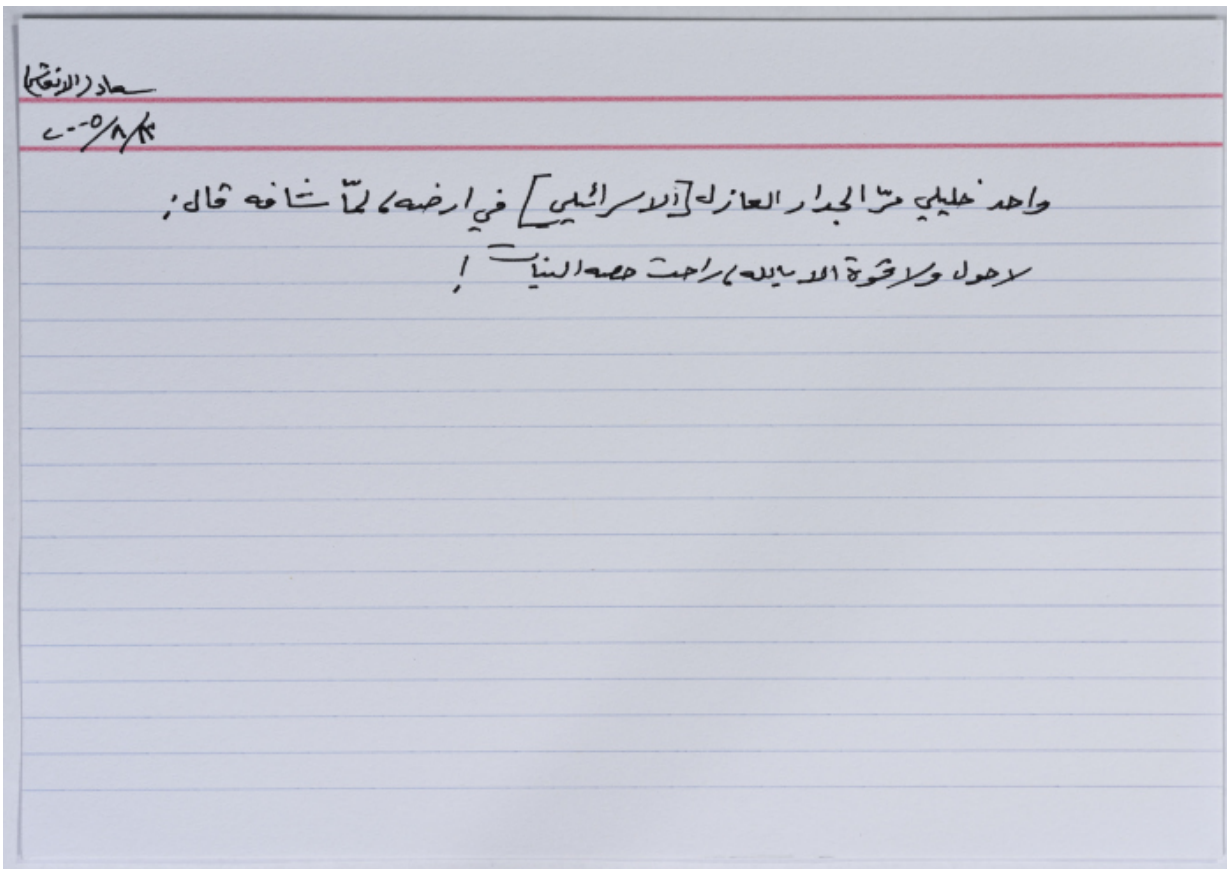 سعاد (الانعاش)
٢٠٠٥/٨/٢٣
واحد خليلي مرّ الجدار العازل [الاسرائيلي] في ارضه، لمّا شافه قال:
لا حول ولا قوة الا بالله، راحت حصه البنات!